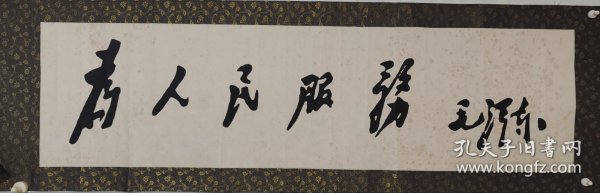 为人民服務 毛泽东
孔夫子旧书网
www.kongfz.com